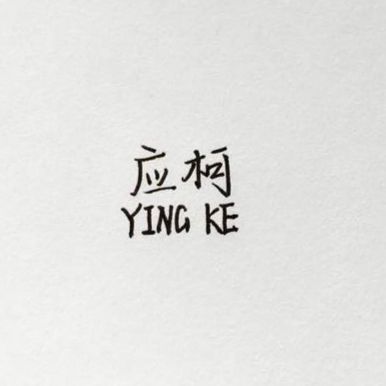 应柯
YING KE